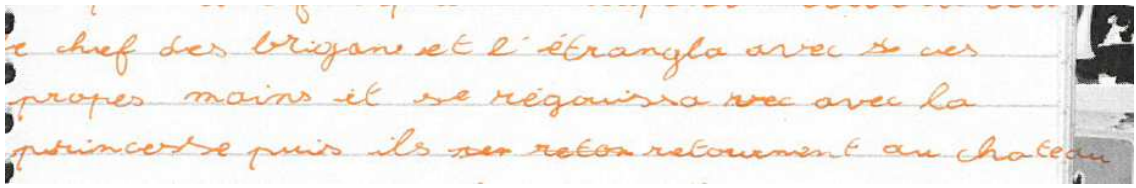 e chef des brigans et l'étrangla avec s ces
propes mains et se régouissa vec avec la
princesse puis ils ser reton retournent au chateau